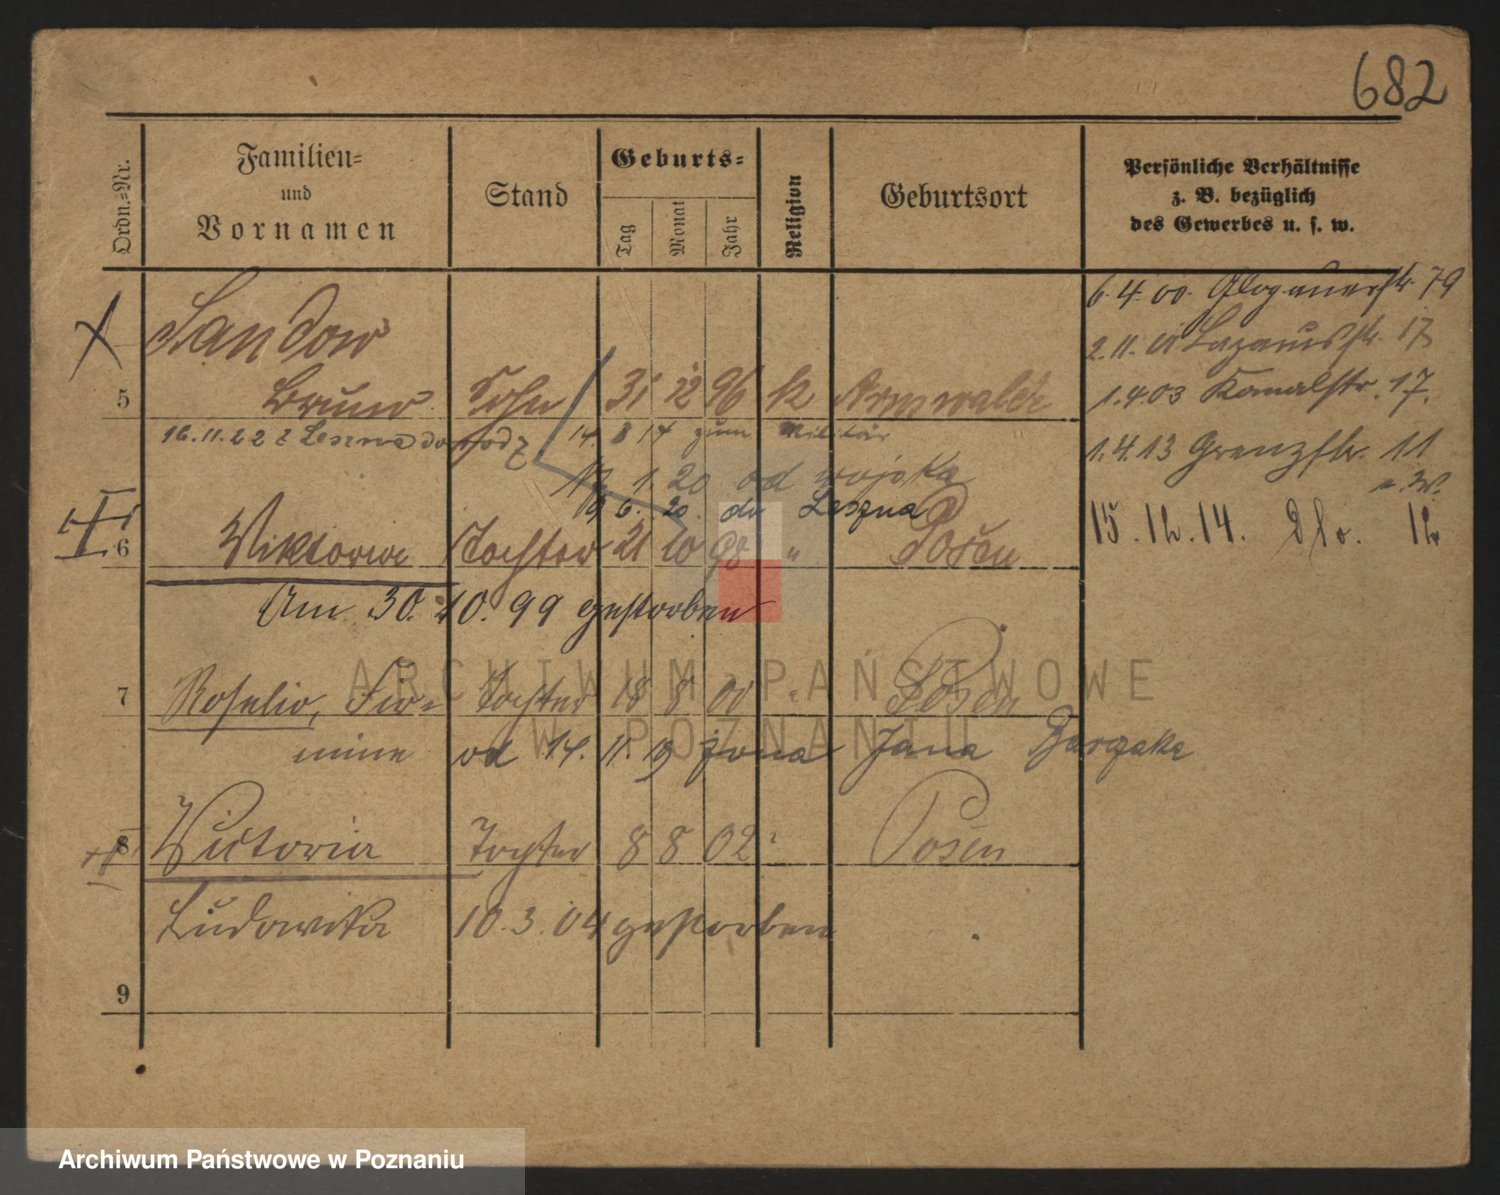 682
Ordn.-Nr.
Familien-
und
Vornamen
Stand
Geburts-
Tag
Monat
Jahr
Religion
Geburtsort
Persönliche Verhältnisse
z. B. bezüglich
des Gewerbes u. s. w.
6.4.00. Glogauerstr. 79
Sandow
2.11.01 Lazarusstr. 17
5 Bruno Sohn 31 12 96 k
1.4.03 Kanalstr. 17.
16.11.22 z Leszna do
14 8 14 zum Militär
1.4.13 Grenzstr. 11
1 20 od wojska
6. 20. do Leszna
15.12.14. 12
6 Viktoria Tochter 21 10 98 " Posen
Am 30.10.99 gestorben
7 Roſalie, Fir- Tochter 18 8 00 " Posen
mine od 14. 11. 19 żona Jana
8 Victoria Tochter 8 8 02 " Posen
Ludowika 10.3.04 gestorben
9
ARCHIWUM PAŃSTWOWE
W POZNANIU
Archiwum Państwowe w Poznaniu